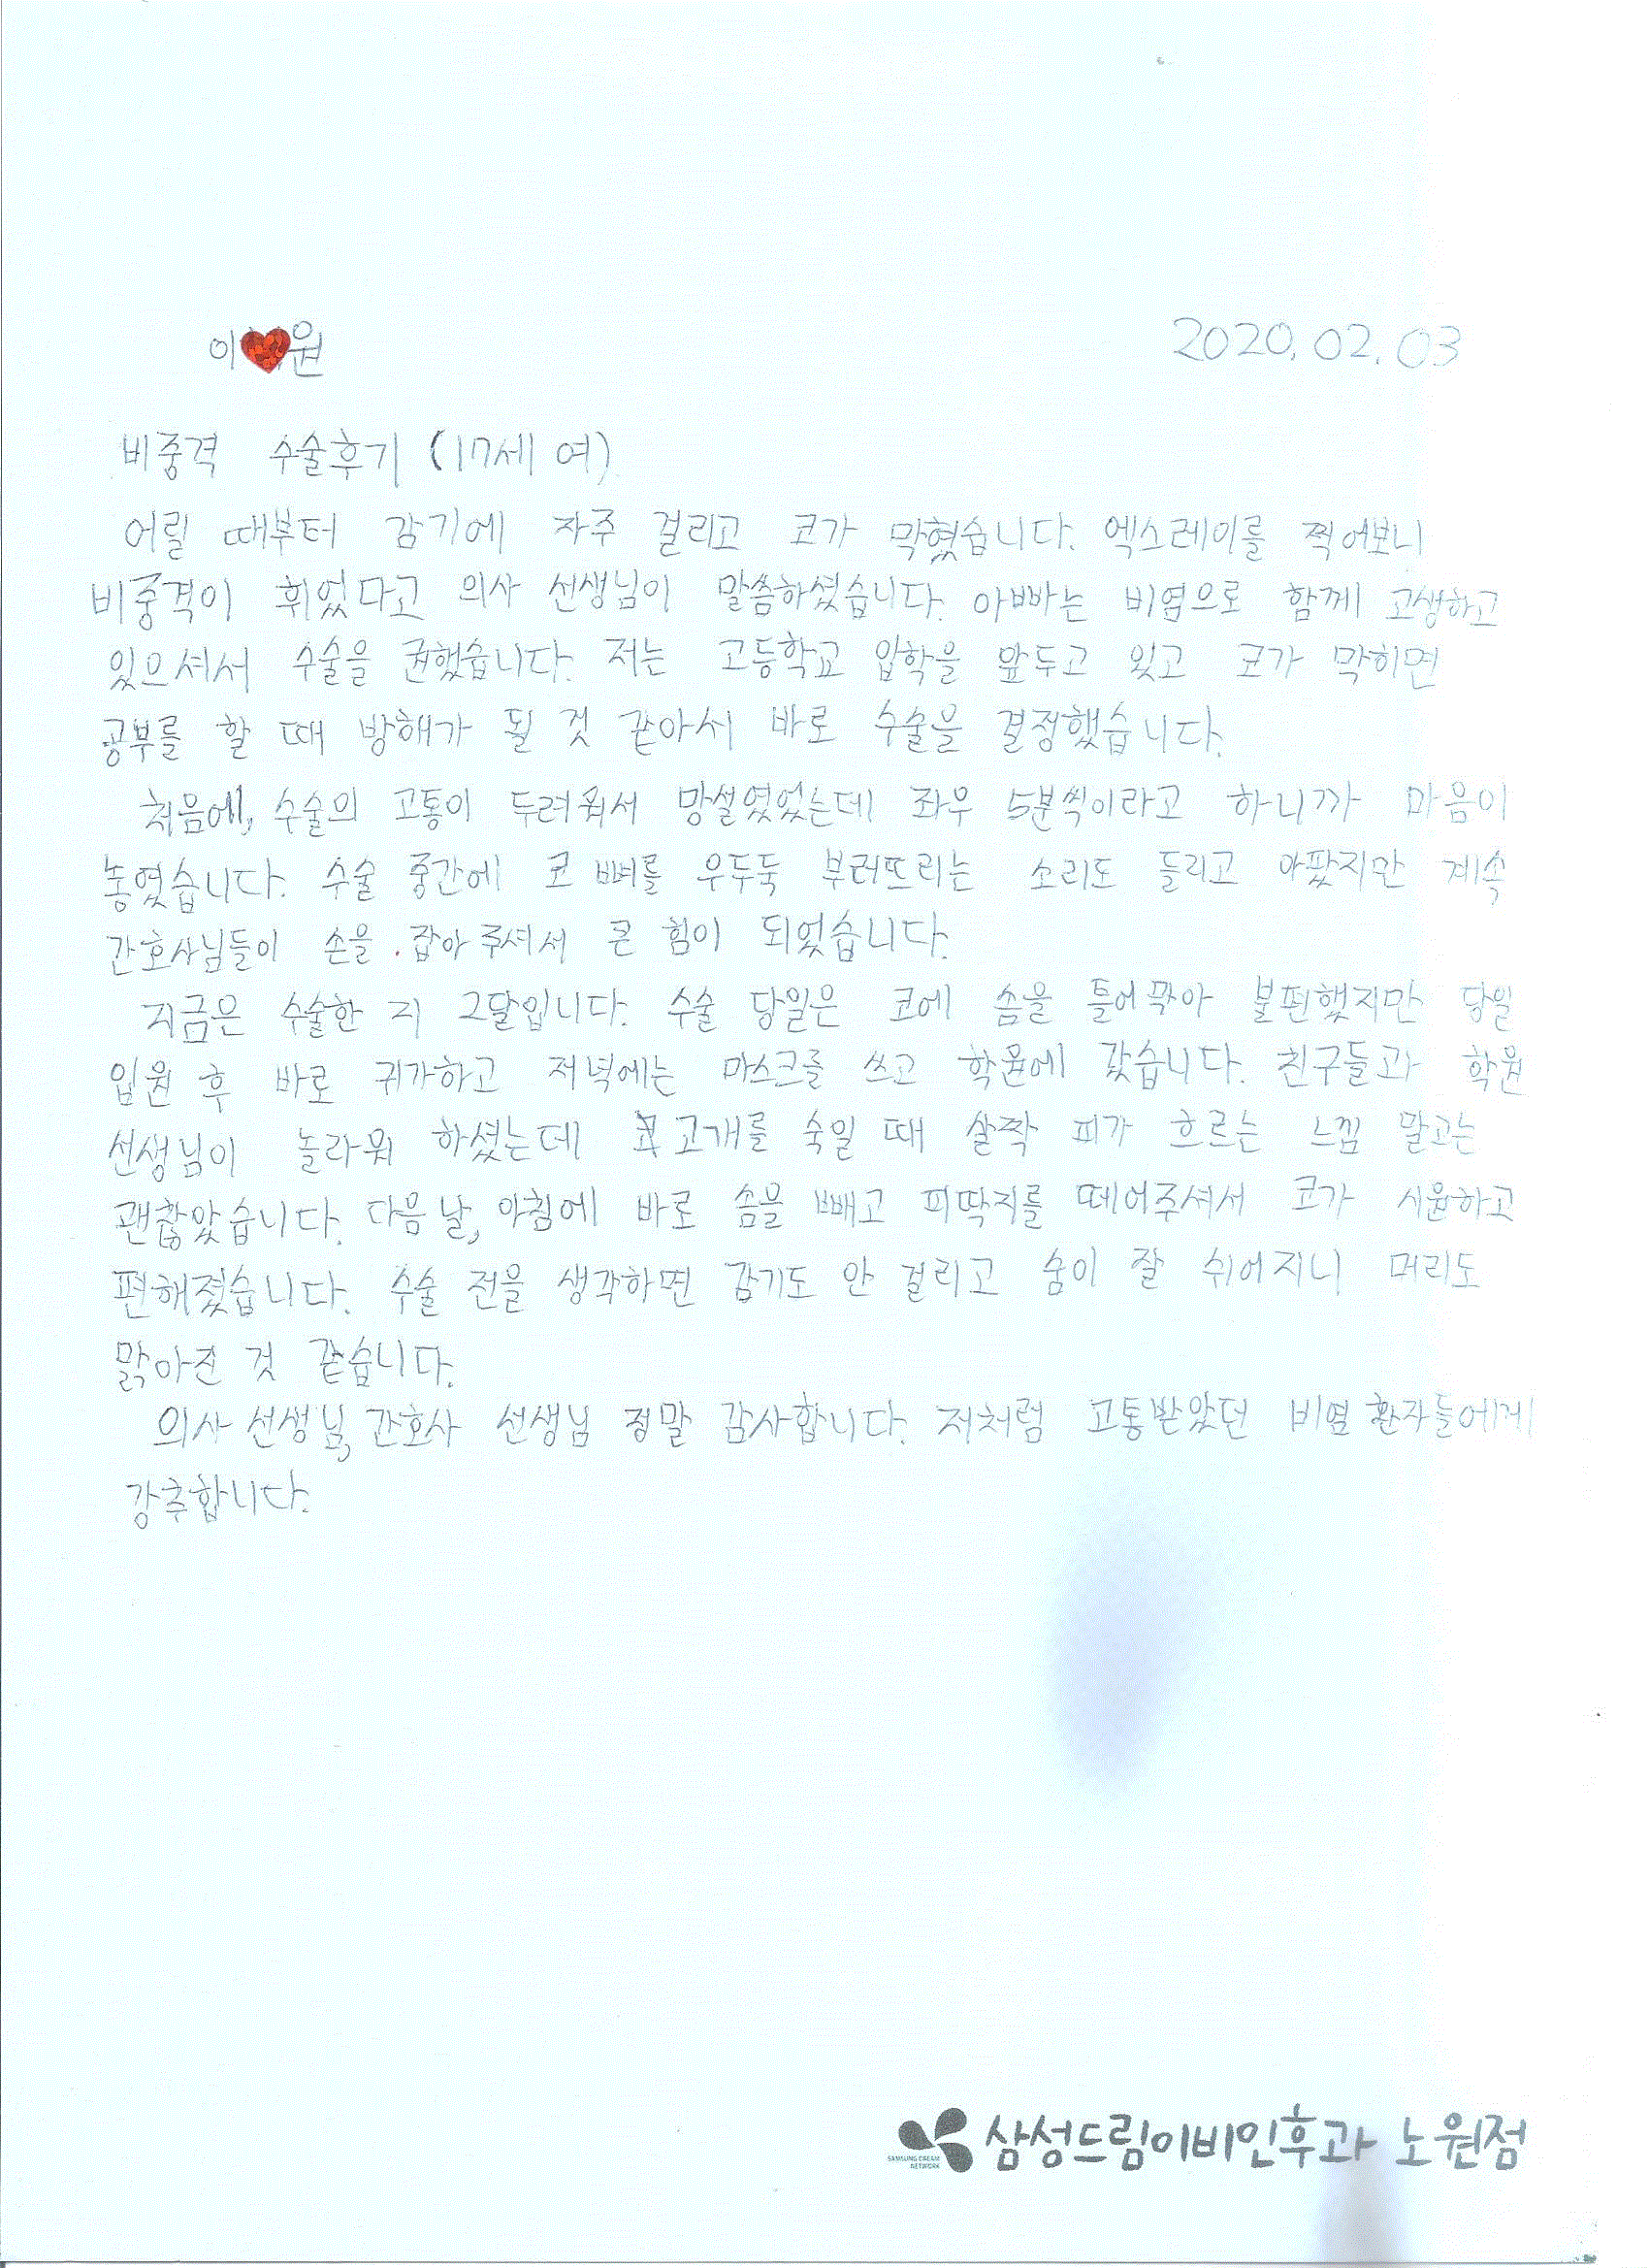 이❤원 2020. 02. 03
비중격 수술후기 (17세 여)
어릴 때부터 감기에 자주 걸리고 코가 막혔습니다. 엑스레이를 찍어보니
비중격이 휘었다고 의사 선생님이 말씀하셨습니다. 아빠는 비염으로 함께 고생하고
있으셔서 수술을 권했습니다. 저는 고등학교 입학을 앞두고 있고 코가 막히면
공부를 할 때 방해가 될 것 같아서 바로 수술을 결정했습니다.
처음에, 수술의 고통이 두려워서 망설였었는데 좌우 5분씩이라고 하니까 마음이
놓였습니다. 수술 중간에 코 뼈를 우두둑 부러뜨리는 소리도 들리고 아팠지만 계속
간호사님들이 손을 잡아주셔서 큰 힘이 되었습니다.
지금은 수술한 지 2달입니다. 수술 당일은 코에 솜을 틀어막아 불편했지만 당일
입원 후 바로 귀가하고 저녁에는 마스크를 쓰고 학원에 갔습니다. 친구들과 학원
선생님이 놀라워 하셨는데 고개를 숙일 때 살짝 피가 흐르는 느낌 말고는
괜찮았습니다. 다음날, 아침에 바로 솜을 빼고 피딱지를 떼어주셔서 코가 시원하고
편해졌습니다. 수술 전을 생각하면 감기도 안 걸리고 숨이 잘 쉬어지니 머리도
맑아진 것 같습니다.
의사 선생님, 간호사 선생님 정말 감사합니다. 저처럼 고통받았던 비염 환자들에게
강추합니다.
삼성드림이비인후과 노원점
SAMSUNG DREAM
NETWORK